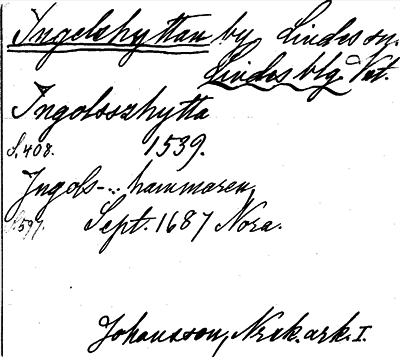 Ingelshyttan by Lindes sn.
Lindes blg. Vst.
Ingolsszhytta
S. 408. 1539.
Ingols-... hammaren,
S. 597. Sept. 1687 Nora.
Johansson, Nrck. ark. I.